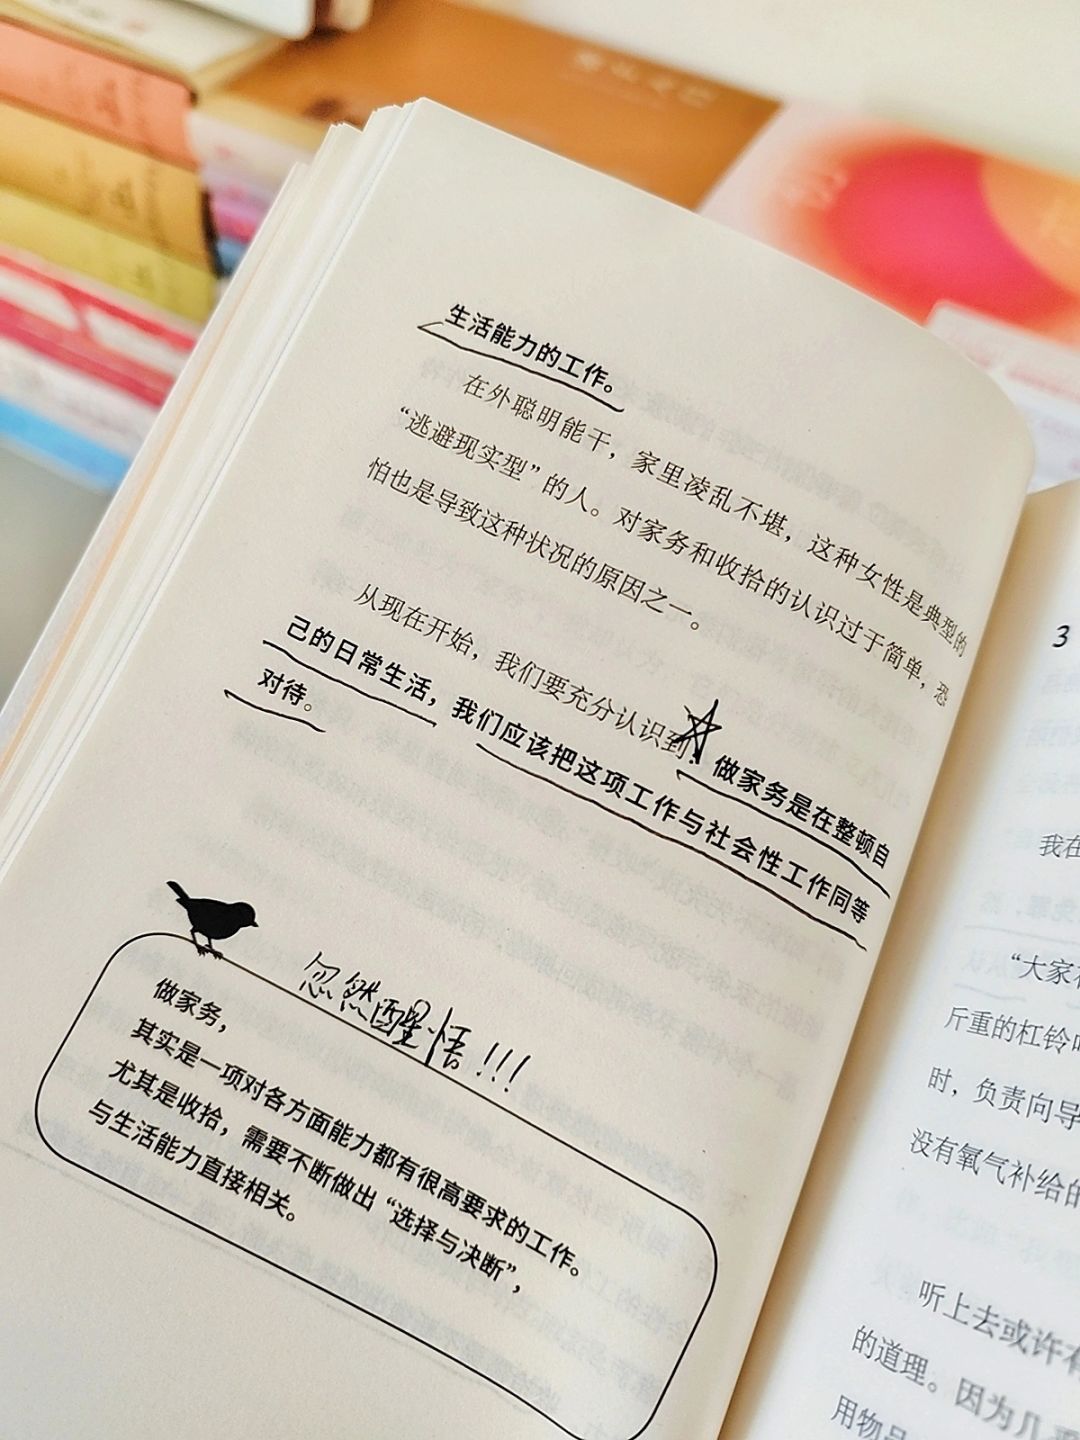 生活能力的工作。
在外聪明能干，家里凌乱不堪，这种女性是典型的
“逃避现实型”的人。对家务和收拾的认识过于简单，恐
怕也是导致这种状况的原因之一。
从现在开始，我们要充分认识到：做家务是在整顿自
己的日常生活，我们应该把这项工作与社会性工作同等
对待。
忽然醒悟！！！
做家务，
其实是一项对各方面能力都有很高要求的工作。
尤其是收拾，需要不断做出“选择与决断”，
与生活能力直接相关。
3
我在
“大家
斤重的杠铃
时，负责向导
没有氧气补给的
听上去或许有
的道理。因为几
用物品